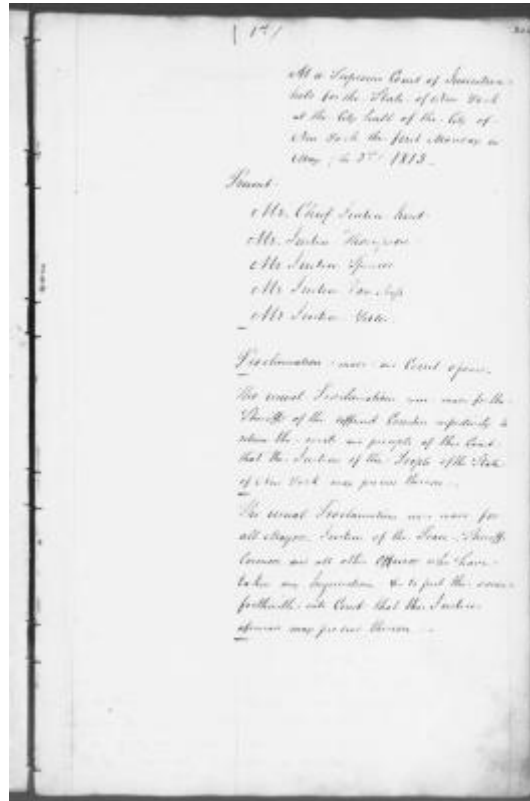 At a Supreme Court of Judicature
held for the State of New York
at the City Hall of the City of
New York the first Monday in
May, the 3rd 1813
Present
Mr. Chief Justice Kent
Mr. Justice Thompson
Mr Justice Spencer
Mr Justice Van Ness
Mr Justice Yates
Proclamation made and Court opened
The usual Proclamation was made for the
Sheriffs of the different Counties respectively to
return the writs and precepts of this Court
that the Justices of the People of the State
of New York may proceed thereon
The usual Proclamation was made for
all Mayors, Justices of the Peace, Sheriffs
Coroners and all other Officers who have
taken any Inquisitions &c to put the same
forthwith into Court that the Justices
aforesaid may proceed thereon